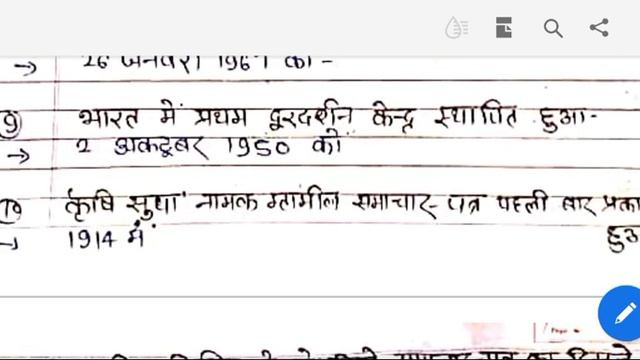 → 26 जनवरी 1967 को -
9 भारत में प्रथम दूरदर्शन केन्द्र स्थापित हुआ -
→ 2 अकटूबर 1950 को
10 कृषि सुधा' नामक ग्रामील समाचार - पत्र पहली बार प्रका
हुअ
→ 1914 में
Page